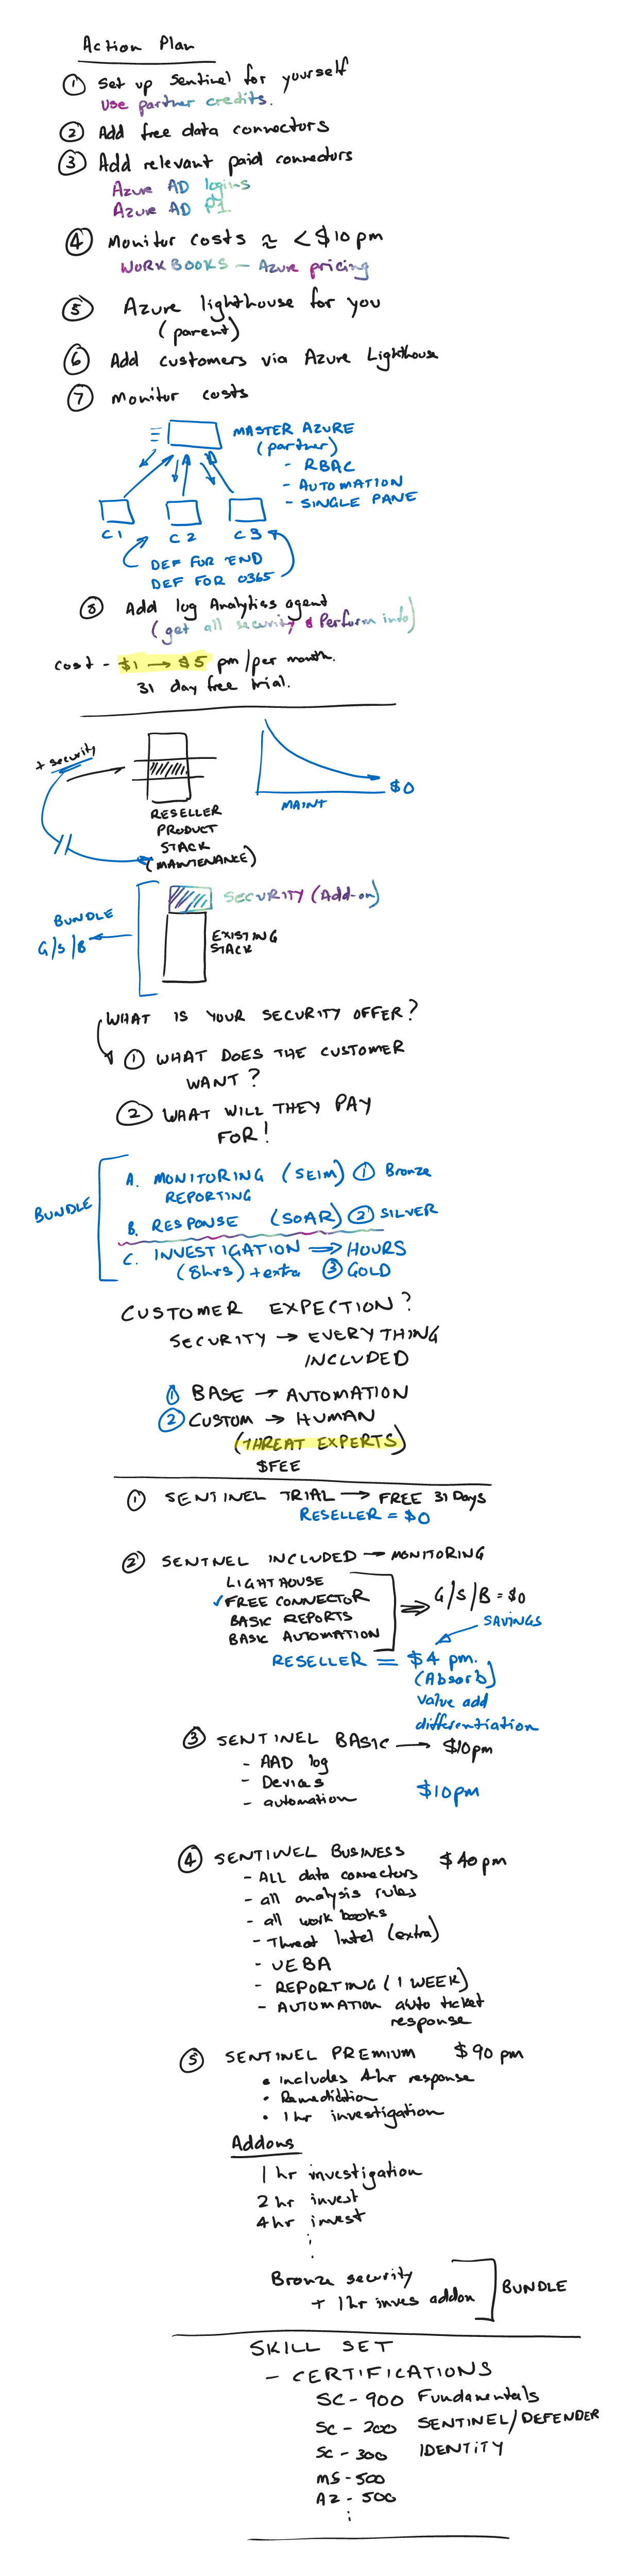 Action Plan
① Set up Sentinel for yourself
Use partner credits.
② Add free data connectors
③ Add relevant paid connectors
Azure AD logins
Azure AD P1
④ Monitor costs ≈ <$10pm
WORKBOOKS – Azure pricing
⑤ Azure lighthouse for you
(parent)
⑥ Add customers via Azure Lighthouse
⑦ Monitor costs
MASTER AZURE
(partner)
- RBAC
- AUTOMATION
- SINGLE PANE
C1 C2 C3
DEF FOR END
DEF FOR O365
⑧ Add log Analytics agent
(get all security & Perform info)
Cost - $1 → $5 pm/per month.
31 day free trial.
+ security
RESELLER
PRODUCT
STACK
(MAINTENANCE)
$0
MAINT
SECURITY (Add-on)
BUNDLE
G/S/B
EXISTING
STACK
WHAT IS YOUR SECURITY OFFER?
① WHAT DOES THE CUSTOMER
WANT?
② WHAT WILL THEY PAY
FOR!
BUNDLE
A. MONITORING (SEIM) ① Bronze
REPORTING
B. RESPONSE (SOAR) ② SILVER
C. INVESTIGATION ⇒ HOURS
(8hrs) + extra ③ GOLD
CUSTOMER EXPECTION?
SECURITY → EVERYTHING
INCLUDED
① BASE → AUTOMATION
② CUSTOM → HUMAN
(THREAT EXPERTS)
$FEE
① SENTINEL TRIAL → FREE 31 Days
RESELLER = $0
② SENTINEL INCLUDED → MONITORING
LIGHTHOUSE
✓FREE CONNECTOR
BASIC REPORTS
BASIC AUTOMATION
⇒ G/S/B = $0
SAVINGS
RESELLER = $4 pm.
(Absorb)
Value add
differentiation
③ SENTINEL BASIC → $10pm
- AAD log
- Devices
- automation
$10pm
④ SENTINEL BUSINESS $40pm
- ALL data connectors
- all analysis rules
- all work books
- Threat Intel (extra)
- UEBA
- REPORTING (1 WEEK)
- AUTOMATION auto ticket
response
⑤ SENTINEL PREMIUM $90 pm
• includes 4hr response
• Remediation
• 1hr investigation
Addons
1 hr investigation
2 hr invest
4hr invest
Bronze security
+ 1hr inves addon
BUNDLE
SKILL SET
- CERTIFICATIONS
SC-900 Fundamentals
SC-200 SENTINEL/DEFENDER
SC-300 IDENTITY
MS-500
AZ-500